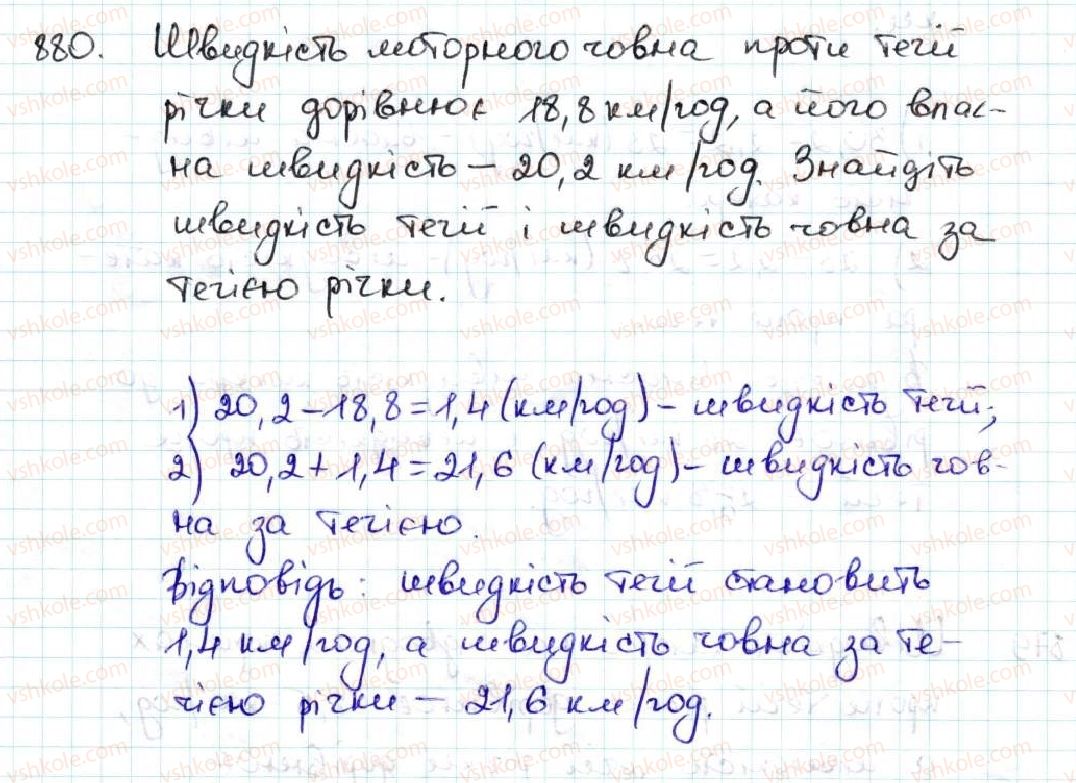 880. Швидкість моторного човна проти течії
річки дорівнює 18,8 км/год, а його влас-
на швидкість – 20,2 км/год. Знайдіть
швидкість течії і швидкість човна за
течією річки.
1) 20,2 – 18,8 = 1,4 (км/год) – швидкість течії;
2) 20,2 + 1,4 = 21,6 (км/год) – швидкість чов-
на за течією.
Відповідь: швидкість течії становить
1,4 км/год, а швидкість човна за те-
чією річки – 21,6 км/год.